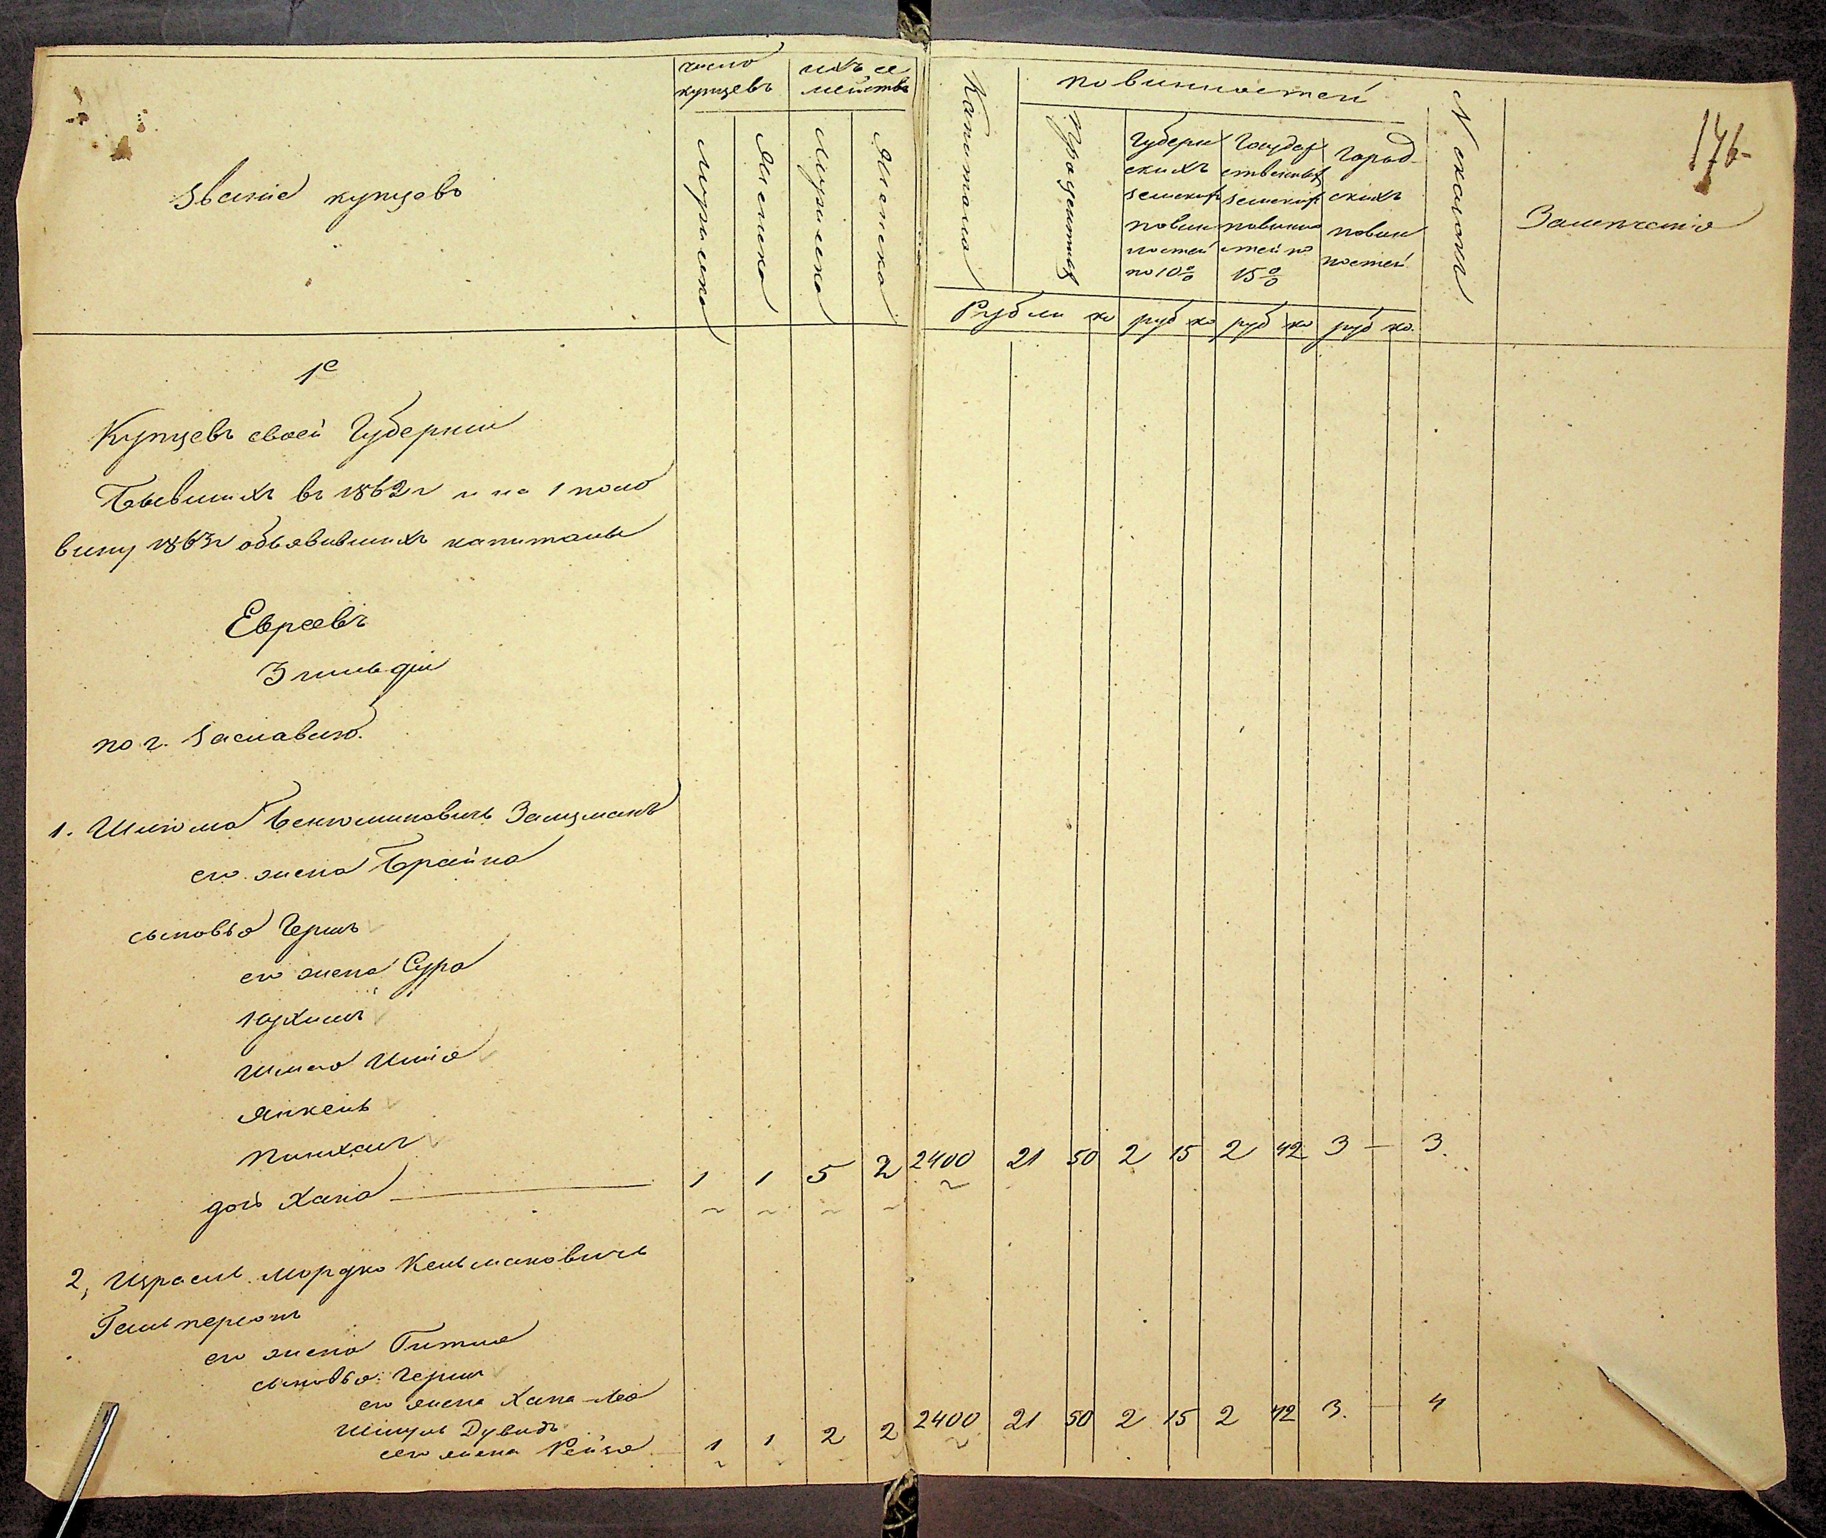 Званіе купцовъ
число купцевъ
ихъ се мействъ
Мужеска
Женска
Мужеска
Женска
Капитала
повинностей
Процентныхъ
Губерн скихъ земскихъ повин ностей по 10%
Государ ственныхъ земскихъ повинно стей по 15%
Город скихъ повин ностей
Замечанія
176
Рубли ко руб ко руб ко руб ко.
1е
Купцевъ своей Губерніи
Бывшихъ въ 1862 г и на 1 поло
вину 1863 г объявившихъ капиталы
Евреевъ
3 гильдіи
по г. Заславлю.
1. Шліома Беньоминовичь Залцманъ
его жена Брайна
сыновья Гершъ
его жена Сура
Нухимъ
Янкель
Пинхасъ
дочь Хана 1 1 5 2 2400 21 50 2 15 2 42 3 — 3.
2, Израель Мордко Кельмановичь
Гальперонъ
его жена Гитля
сыновья: Гершъ
его жена Хана-Лея
Шмуль Дувидъ
его жена Рейзя 1 1 2 2 2400 21 50 2 15 2 42 3. — 4